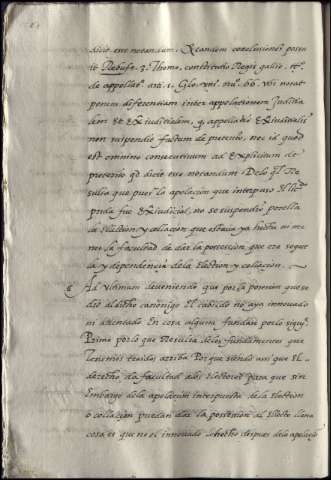 dicit esse notandum. Et eandem conclusionem posuit
it Rebuff. 2. Thomo, constitutio Regni gallie. tt.
de appellat. art. 1. Glo. vni. nu. 66. vbi notat
differentiam inter appelationem Judicia
lem et Extrajudicialem, quod appellatio Extrajudicialis
non suspendit factum de presenti, nec id quod
est omnino consecutivum ad explicitum de
presenti quod dicit esse notandum. De lo qual Re
sulta que pues la apelaçion que interpuso el
fue Extrajudicial, no se suspendio por ella
la election y collaçion que estava ya hecha ni me
nos la facultad de dar la possession, que era seque
la y dependençia dela election y collaçion.
6 Ad Vltimum deveniendo que por la possession que se
dio al dicho canonigo el cabildo no aya innovado
ni attentado en cosa alguna fundase por lo siguiente.
Primo por lo que Resulta delos fundamentos que
tenemos traidos arriba Porque siendo assi que el
derecho da facultad alos electores para que sin
embargo dela apelaçion interpuesta dela election
o collaçion puedan dar la possession al electo llana
cosa es que no es innovado lo hecho despues dela apelaçion